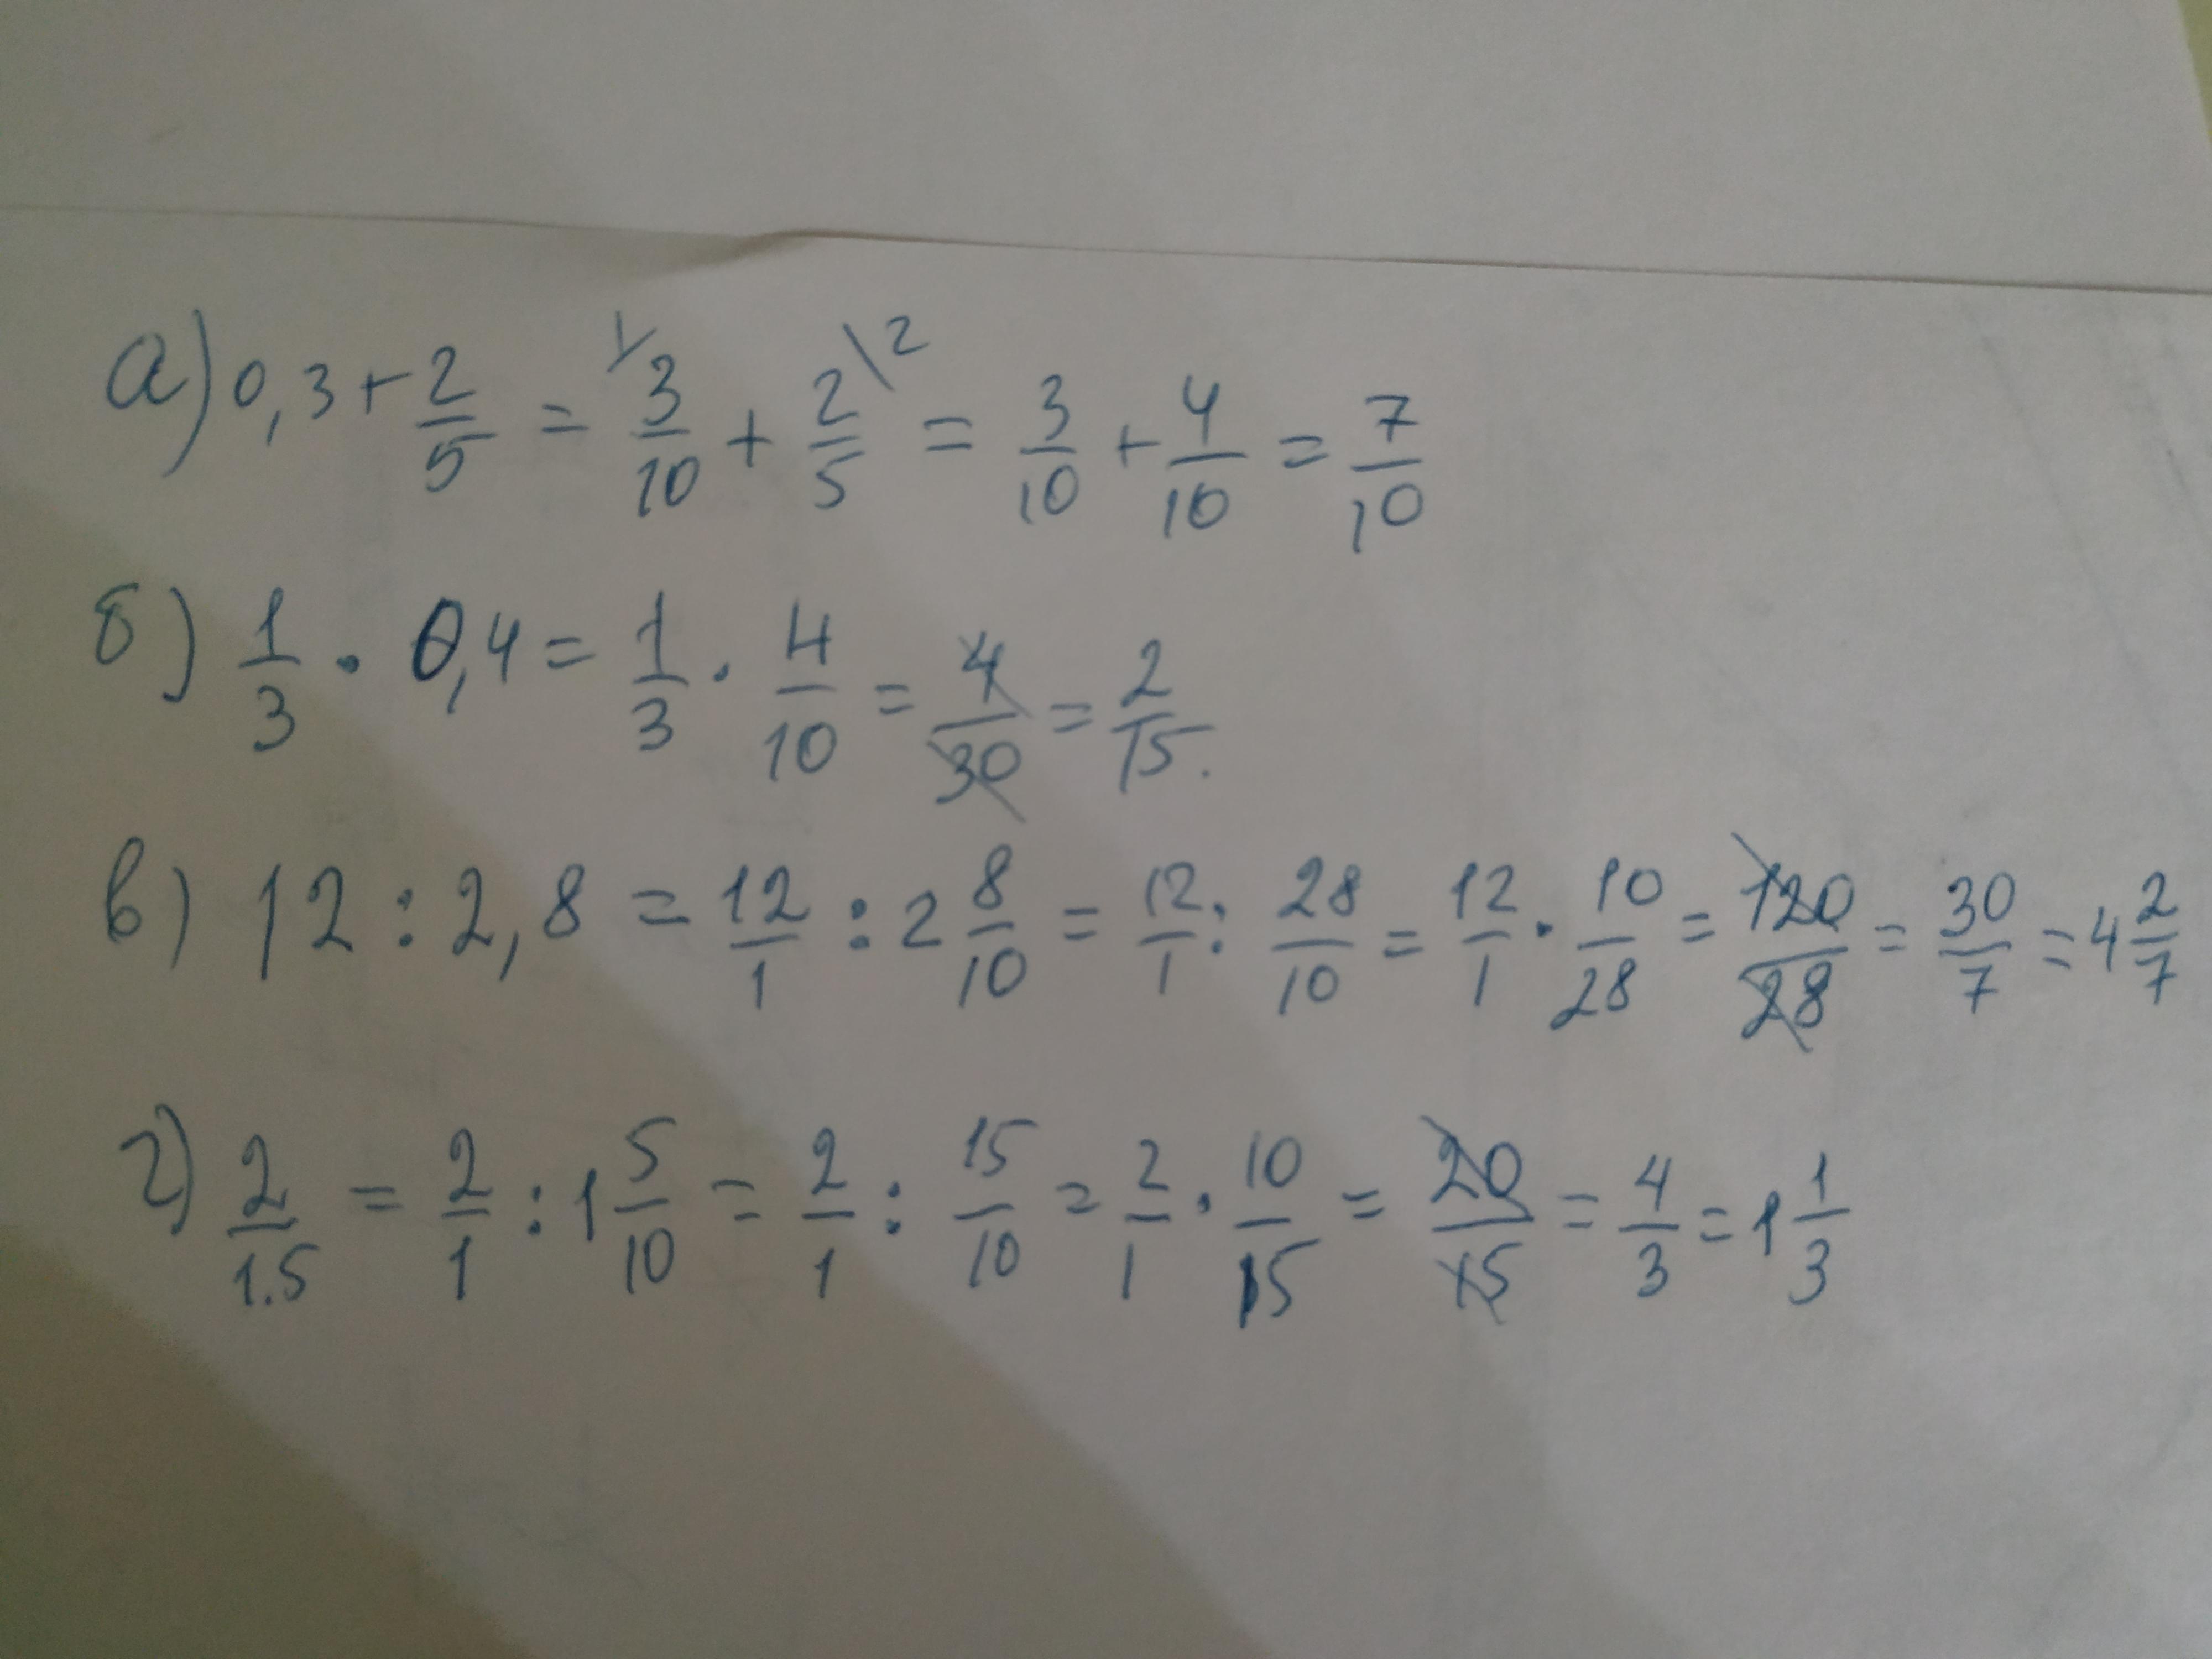 а) 0,3 + 2/5 = 3/10 + 2/5 \2 = 3/10 + 4/10 = 7/10
б) 1/3 · 0,4 = 1/3 · 4/10 = 4/30 = 2/15.
в) 12 : 2,8 = 12/1 : 2 8/10 = 12/1 : 28/10 = 12/1 · 10/28 = 120/28 = 30/7 = 4 2/7
г) 2/1.5 = 2/1 : 1 5/10 = 2/1 : 15/10 = 2/1 · 10/15 = 20/15 = 4/3 = 1 1/3